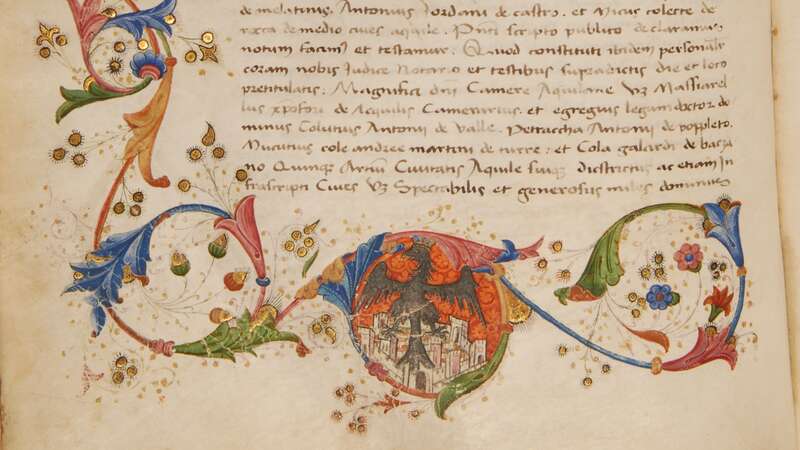 de melatinis. Antonius Jordani de castro. et Nicus colecte de
rocca de medio cives aquile. Pnti scripto publico declaramus
notum facimus et testamur. Quod constituti ibidem personaliter
coram nobis Judice Notario et testibus supradictis die et loco
pretitulatis. Magnifici dni Camere Aquilane Vz Massarel
lus xpofori de Aequilis Camerarius. et egregius legum doctor do
minus Colutius Antonii de Valle. Petraccha Antonii de poppleto.
Mucutius cole andree martini de turre: et Cola galardi de
no Quinque Artium Civitatis Aquile suique districtus ac etiam In
frascripti Cives Vz Spectabilis et generosus miles dominus